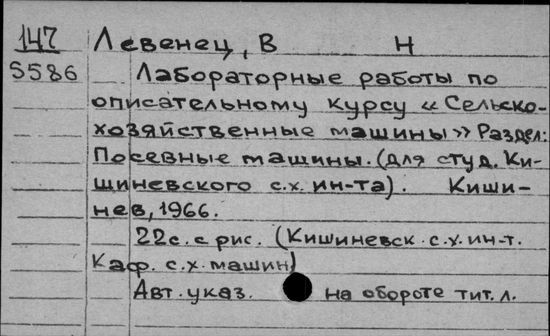 147 Левенец, В Н
S586 Лабораторные работы по
описательному курсу «Сельско-
хозяйственные машины» Раздел:
Посевные машины. (для студ. Ки-
шиневского с.х. ин-та). Киши-
нев, 1966.
22с. с рис. (Кишиневск. с.х. ин-т.
Каф. с.х. машин)
Авт. указ. на обороте тит. л.